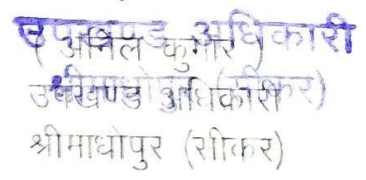 उपखण्ड अधिकारी
( अनिल कुमार )
श्रीमाधोपुर (सीकर)
उपखण्ड अधिकारी
श्रीमाधोपुर (सीकर)